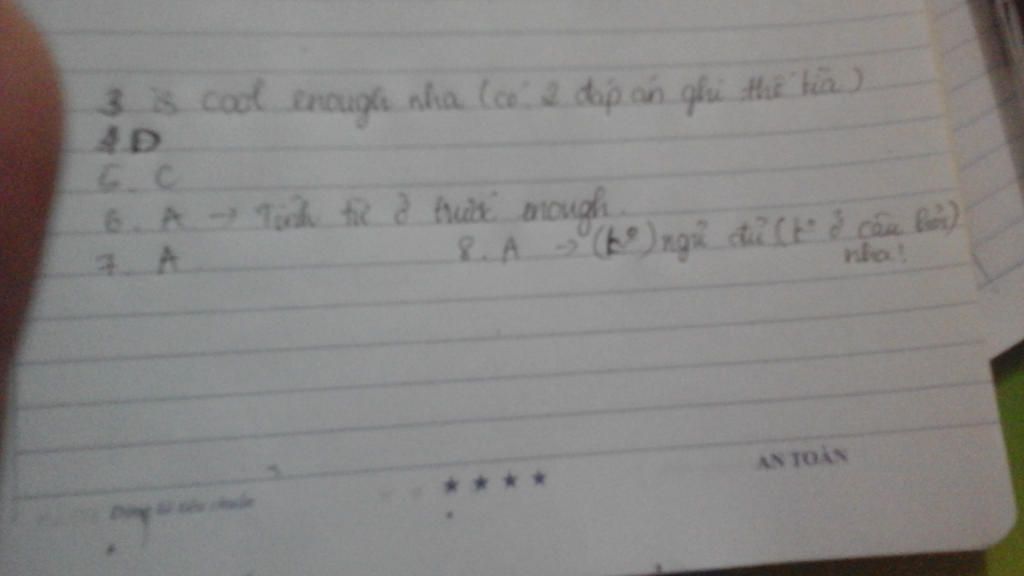 3 is cool enough nha (có 2 đáp án ghi thế kia)
4 D
5. C
6. A → Tính từ ở trước enough.
7. A 8. A → (k°) ngữ đủ (k° ở câu
nha!
★ ★ ★ ★ AN TOÀN